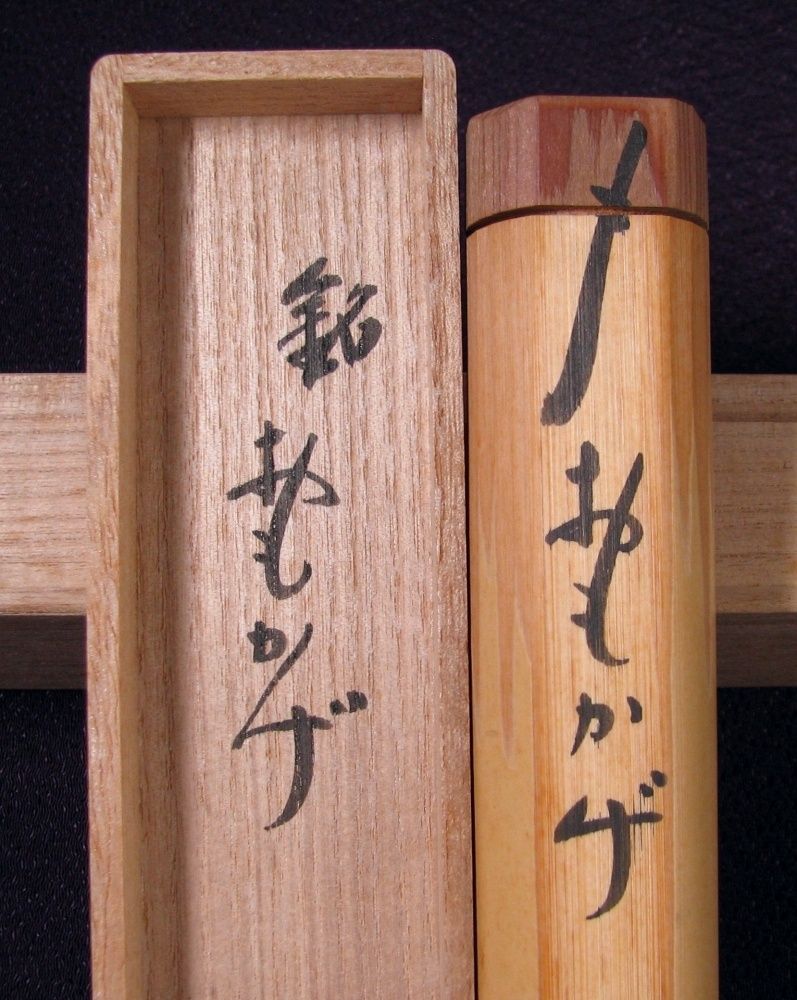 〆 おもかげ
銘 おもかげ